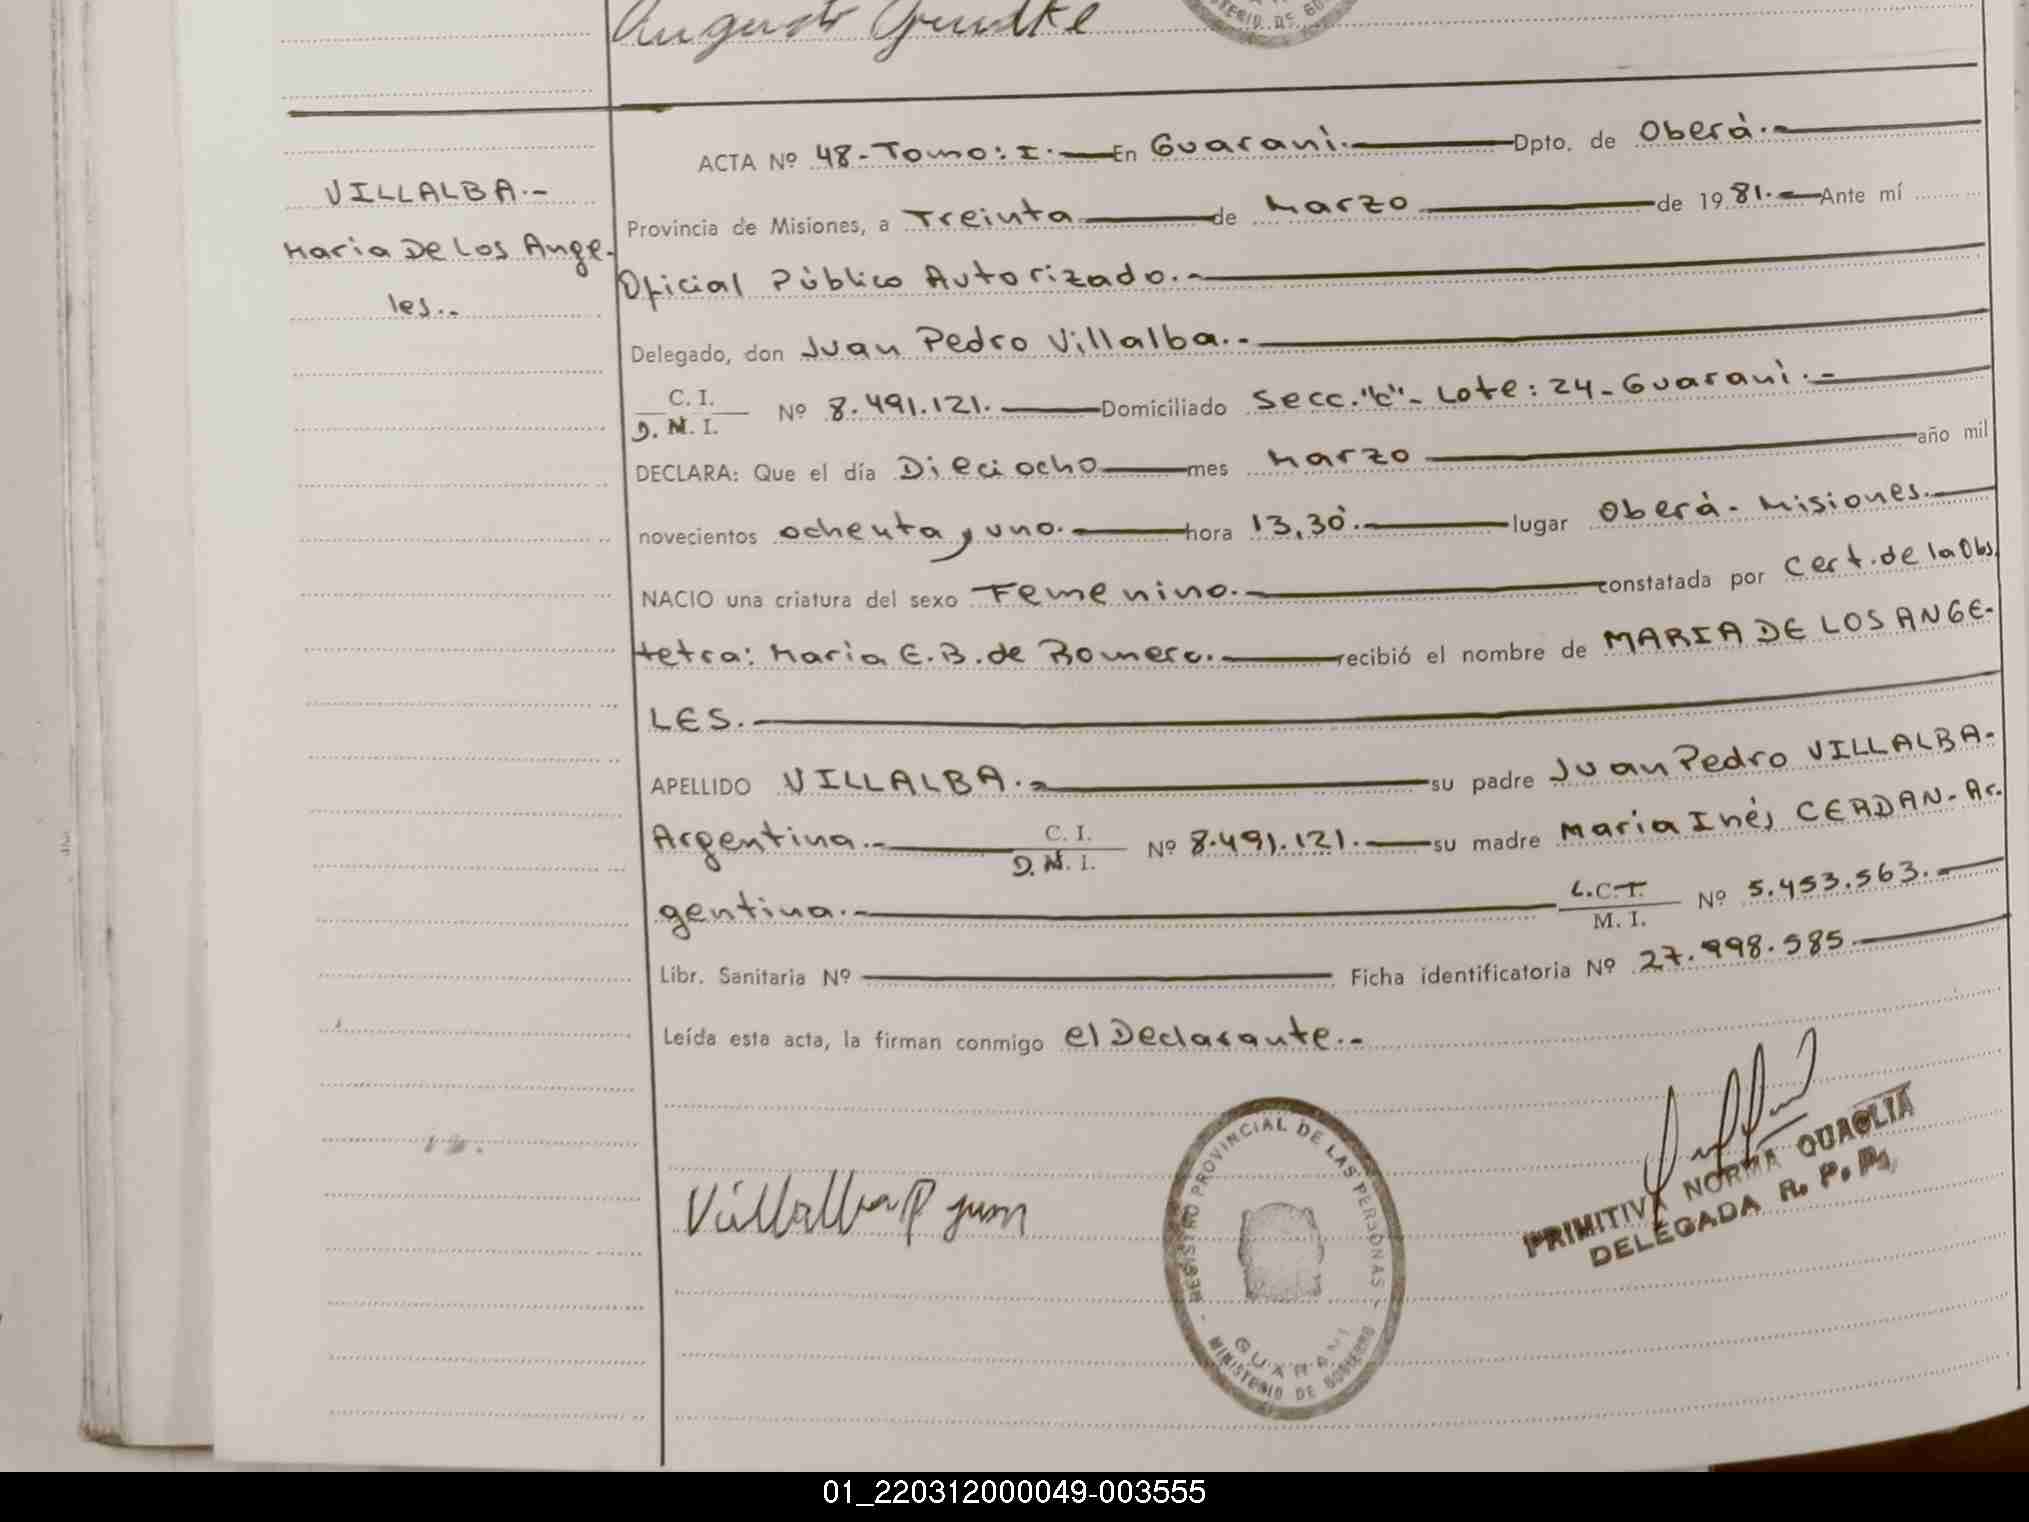 Augusto
MINISTERIO DE GOB
ACTA Nº 48-Tomo: I.- En Guaraní.- Dpto. de Oberá.-
VILLALBA.-
Maria De Los Ange-
les.-
Provincia de Misiones, a Treinta de Marzo de 1981.- Ante mí
Oficial Público Autorizado.-
Delegado, don Juan Pedro Villalba.-
C. I.
D. N. I. Nº 8.491.121. Domiciliado Secc."C"- Lote: 24- Guaraní.-
DECLARA: Que el día Dieciocho mes Marzo año mil
novecientos ochenta y uno. hora 13,30. lugar Oberá- Misiones.
NACIO una criatura del sexo Femenino.- constatada por Cert. de la Obs.
tetra: Maria E.B. de Romero. recibió el nombre de MARIA DE LOS ANGE-
LES.
APELLIDO VILLALBA.- su padre Juan Pedro VILLALBA-
Argentina.- C. I.
D. N. I. Nº 8.491.121. su madre Maria Inés CERDAN- Ar.
gentina.- L.C. I.
M. I. Nº 5.453.563.-
Libr. Sanitaria Nº Ficha identificatoria Nº 27.998.585.
Leída esta acta, la firman conmigo el Declarante.-
Villalba P Juan
REGISTRO PROVINCIAL DE LAS PERSONAS
GUARANI
MINISTERIO DE GOBIERNO
PRIMITIVA NORMA QUAGLIA
DELEGADA R. P. P.
01_220312000049-003555